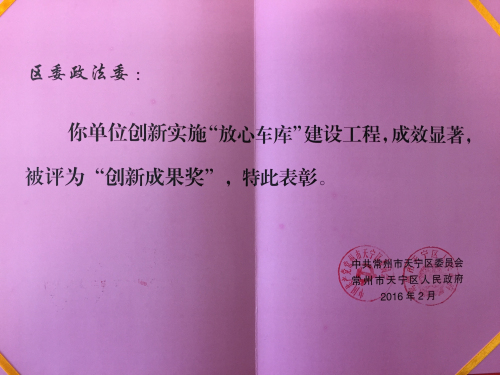 区委政法委：
你单位创新实施“放心车库”建设工程，成效显著，
被评为“创新成果奖”，特此表彰。
中共常州市天宁区委员会
常州市天宁区人民政府
2016年2月